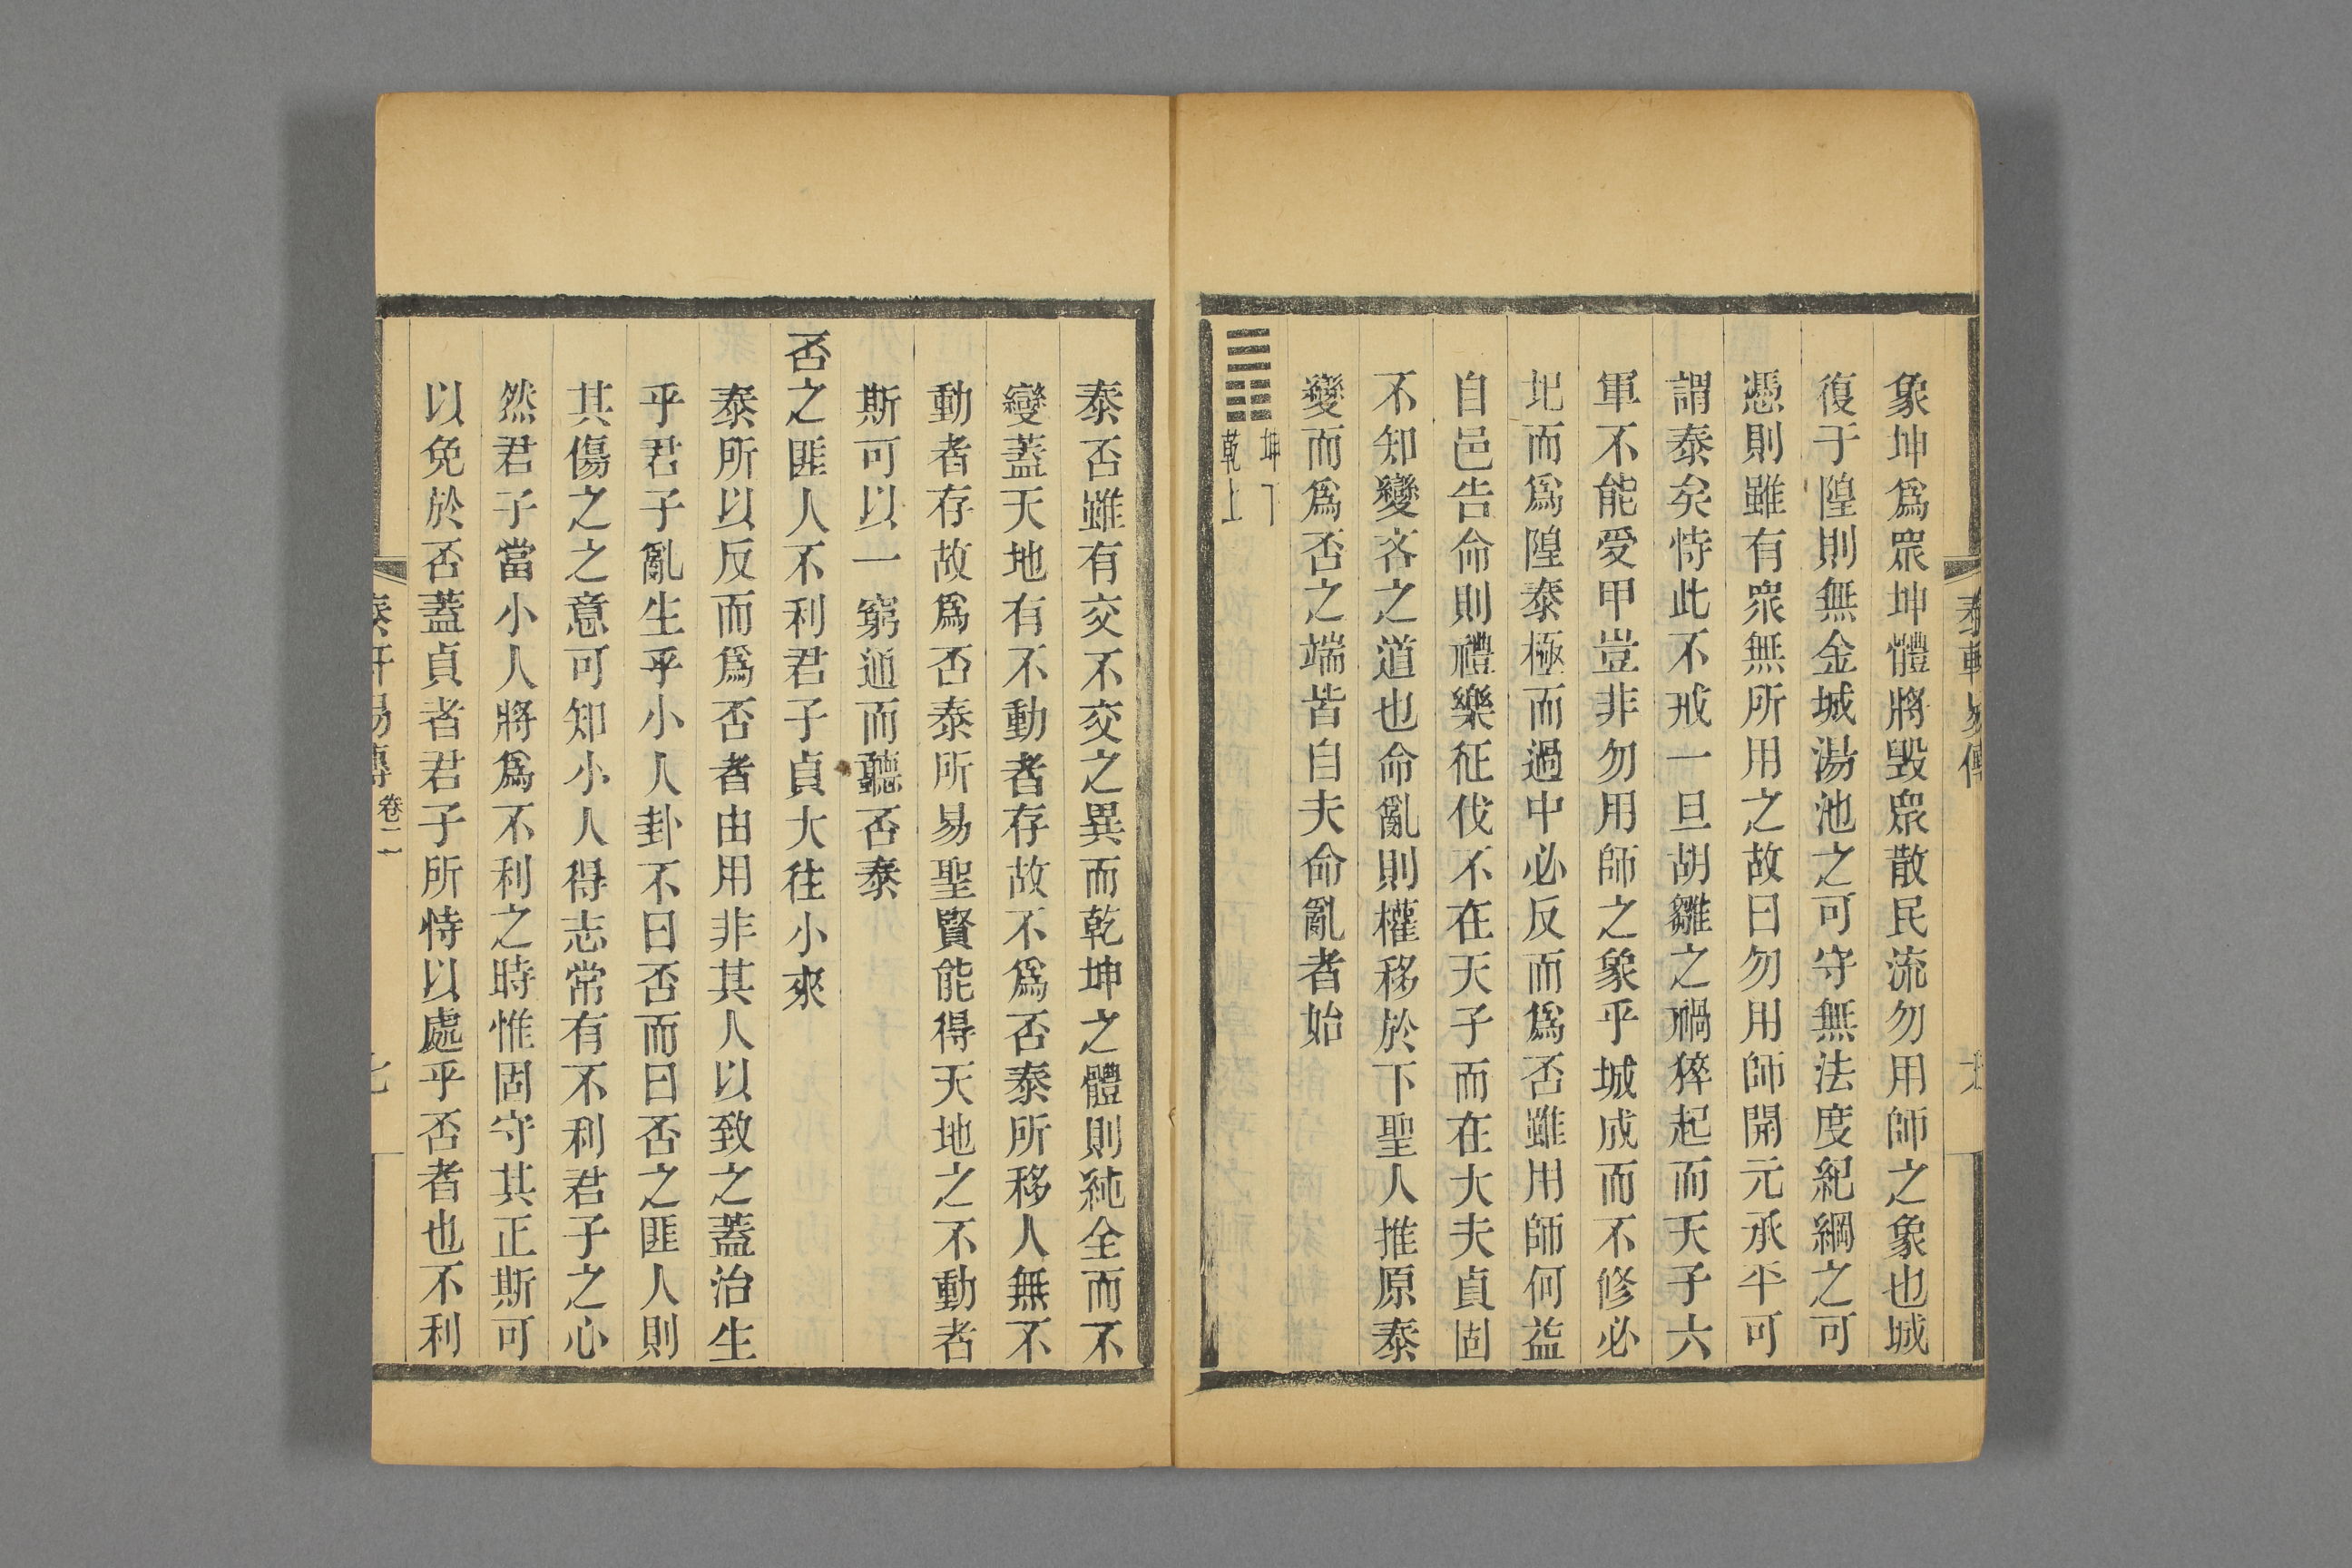 泰軒易傳
象坤爲眾坤體將毀眾散民流勿用師之象也城
復于隍則無金城湯池之可守無法度紀綱之可
憑則雖有眾無所用之故曰勿用師開元承平可
謂泰矣恃此不戒一旦胡雛之禍猝起而天子六
軍不能受甲豈非勿用師之象乎城成而不修必
圯而爲隍泰極而過中必反而爲否雖用師何益
自邑告命則禮樂征伐不在天子而在大夫貞固
不知變吝之道也命亂則權移於下聖人推原泰
變而爲否之端皆自夫命亂者始
坤下
乾上
泰否雖有交不交之異而乾坤之體則純全而不
變蓋天地有不動者存故不爲否泰所移人無不
動者存故爲否泰所易聖賢能得天地之不動者
斯可以一窮通而聽否泰
否之匪人不利君子貞大往小來
泰所以反而爲否者由用非其人以致之蓋治生
乎君子亂生乎小人卦不曰否而曰否之匪人則
其傷之之意可知小人得志常有不利君子之心
然君子當小人將爲不利之時惟固守其正斯可
以免於否蓋貞者君子所恃以處乎否者也不利
泰軒易傳 卷二 七